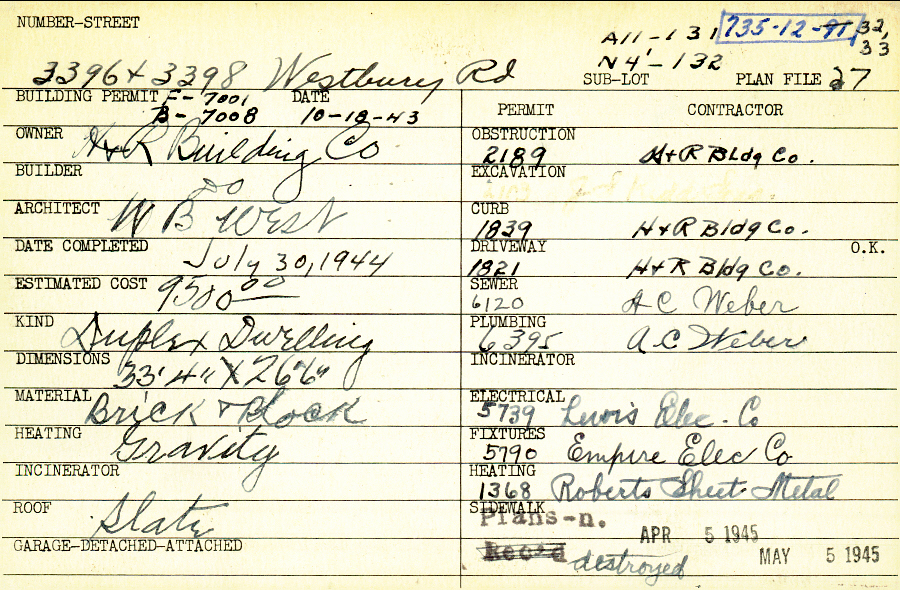 NUMBER-STREET
A11-131 735-12-91, 32,
33
N4'-132
3396+3398 Westbury Rd
SUB-LOT PLAN FILE 27
BUILDING PERMIT F-7001 DATE
B-7008 10-18-43
PERMIT CONTRACTOR
OWNER H+R Building Co
OBSTRUCTION
2189 H+R Bldg Co.
BUILDER
do
EXCAVATION
ARCHITECT W B West
CURB
1839 H+R Bldg Co.
DATE COMPLETED
July 30, 1944
DRIVEWAY O.K.
1821 H+R Bldg Co.
ESTIMATED COST 9500 00
SEWER
6120 A C Weber
KIND Duplex Dwelling
PLUMBING
6395 A C Weber
DIMENSIONS 33'4" X 26'6"
INCINERATOR
MATERIAL Brick + Block
ELECTRICAL
5739 Lewis Elec. Co
HEATING Gravity
FIXTURES
5790 Empire Elec Co
INCINERATOR
HEATING
1368 Roberts Sheet Metal
ROOF Slate
SIDEWALK
Plans-n.
APR 5 1945
GARAGE-DETACHED-ATTACHED
Rec'd destroyed MAY 5 1945